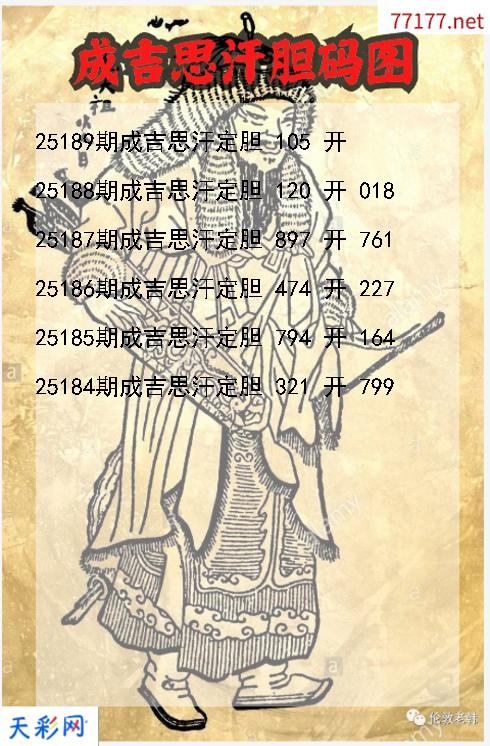 77177.net
成吉思汗胆码图
太祖
25189期成吉思汗定胆 105 开
25188期成吉思汗定胆 120 开 018
25187期成吉思汗定胆 897 开 761
25186期成吉思汗定胆 474 开 227
25185期成吉思汗定胆 794 开 164
25184期成吉思汗定胆 321 开 799
alamy
天彩网
伦敦老韩